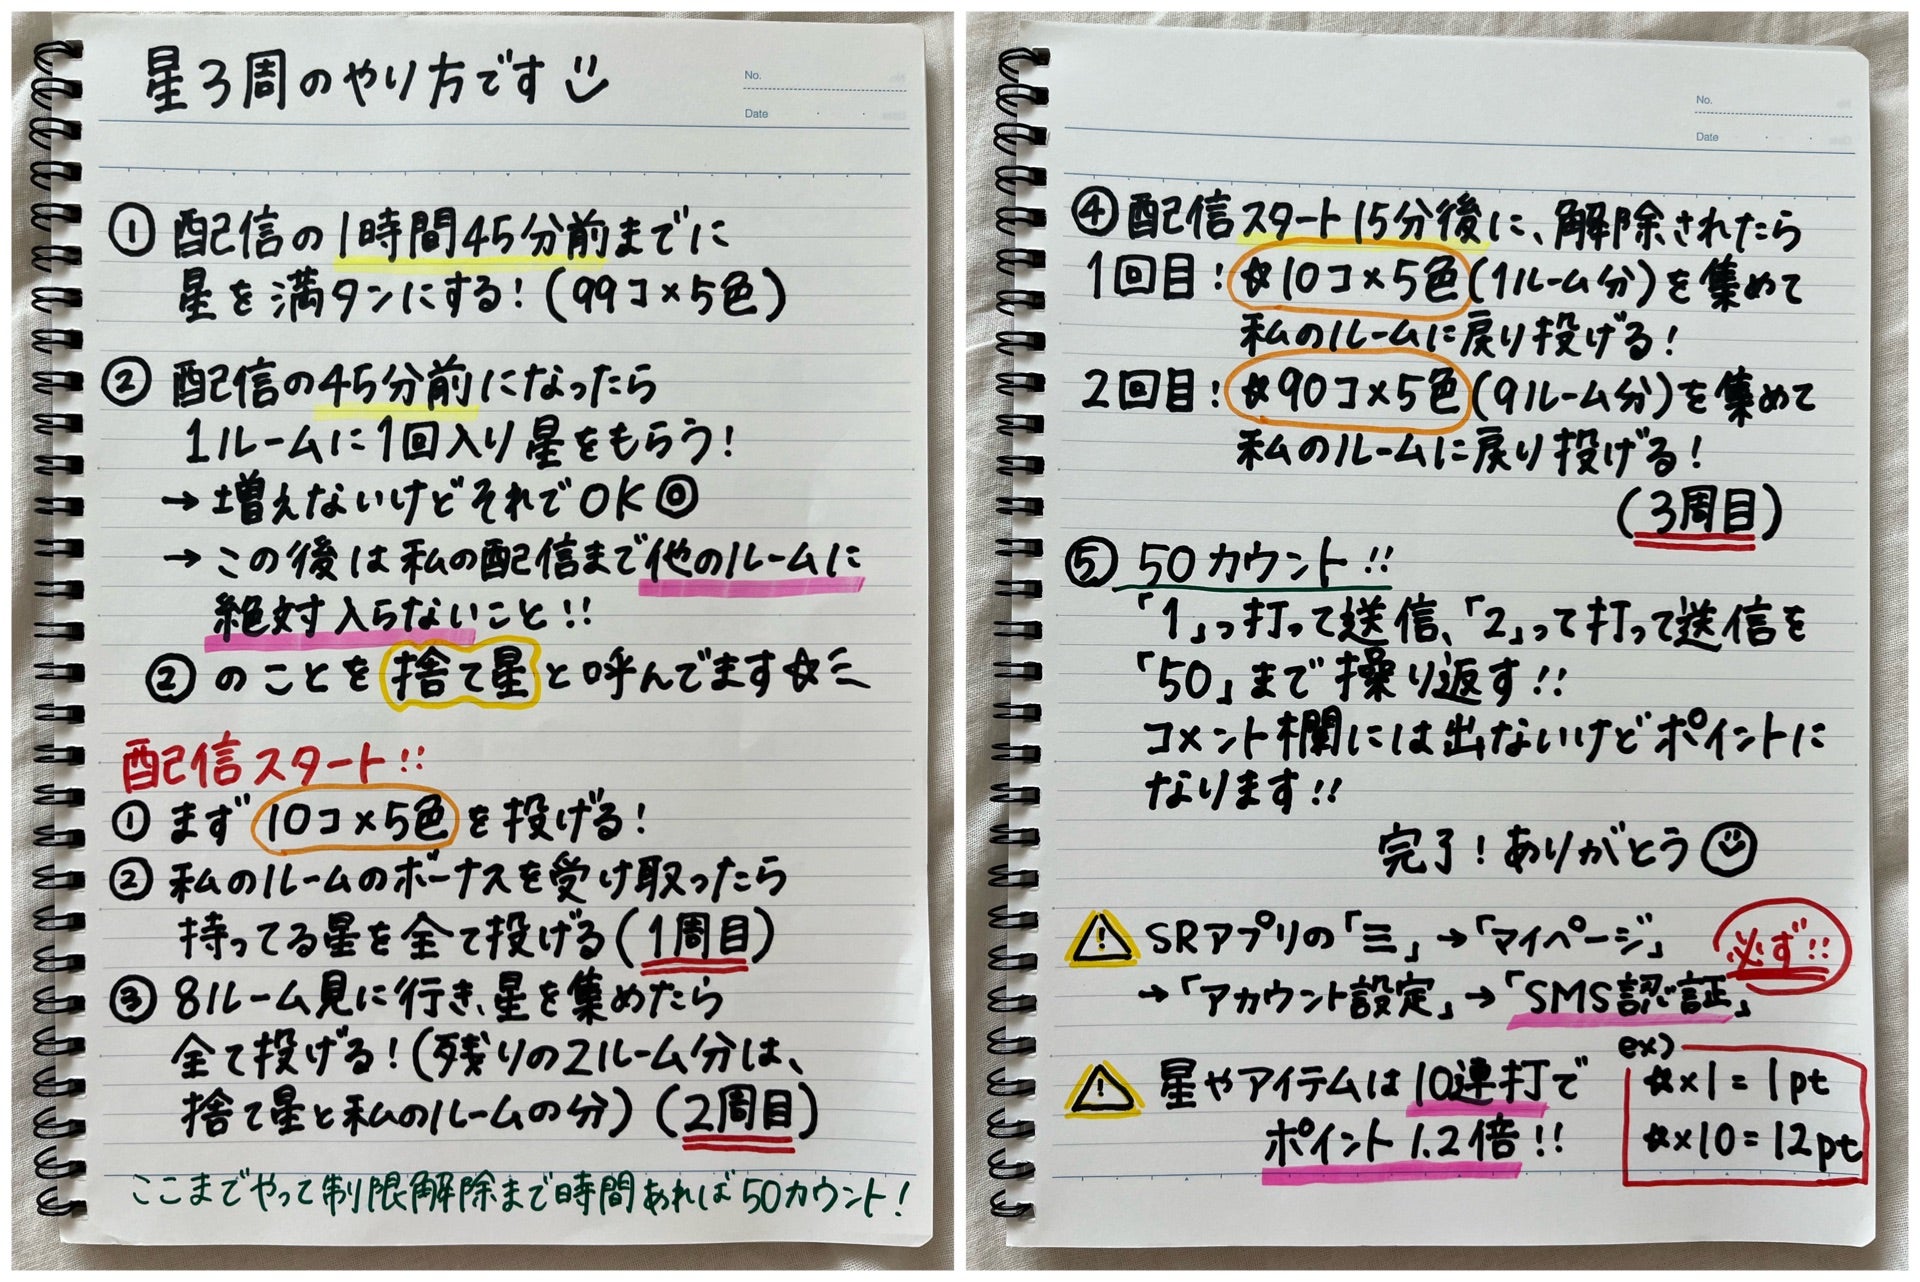 星3周のやり方です
No.
Date
①配信の1時間45分前までに
星を満タンにする!(99コ×5色)
②配信の45分前になったら
1ルームに1回入り星をもらう!
→増えないけどそれでOK◎
→この後は私の配信まで他のルームに
絶対入らないこと!!
②のことを捨て星と呼んでます☆
配信スタート!!
①まず10コ×5色を投げる!
②私のルームのボーナスを受け取ったら
持ってる星を全て投げる(1周目)
③8ルーム見に行き、星を集めたら
全て投げる!(残りの2ルーム分は、
捨て星と私のルームの分)(2周目)
ここまでやって制限解除まで時間あれば50カウント!
No.
Date
④配信スタート15分後に、解除されたら
1回目:☆10コ×5色(1ルーム分)を集めて
私のルームに戻り投げる!
2回目:☆90コ×5色(9ルーム分)を集めて
私のルームに戻り投げる!
(3周目)
⑤50カウント!!
「1」って打って送信、「2」って打って送信を
「50」まで操り返す!!
コメント欄には出ないけどポイントに
なります!!
完了!ありがとう
⚠SRアプリの「三」→「マイページ」
→「アカウント設定」→「SMS認証」
必ず!!
⚠星やアイテムは10連打で
ポイント1.2倍!!
ex)
☆×1=1pt
☆×10=12pt